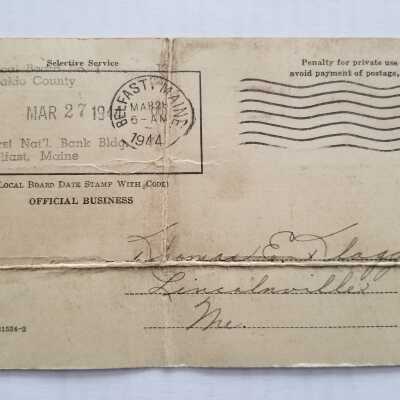 Selective Service
Local Board No. 1
aldo County
MAR 27 194
rst Nat'l. Bank Bldg.
lfast, Maine
(LOCAL BOARD DATE STAMP WITH CODE)
OFFICIAL BUSINESS
BELFAST, MAINE
MAR 28
6-AM
1944
Penalty for private use
avoid payment of postage,
Thomas E. Flagg
Lincolnville
Me.
21534-2